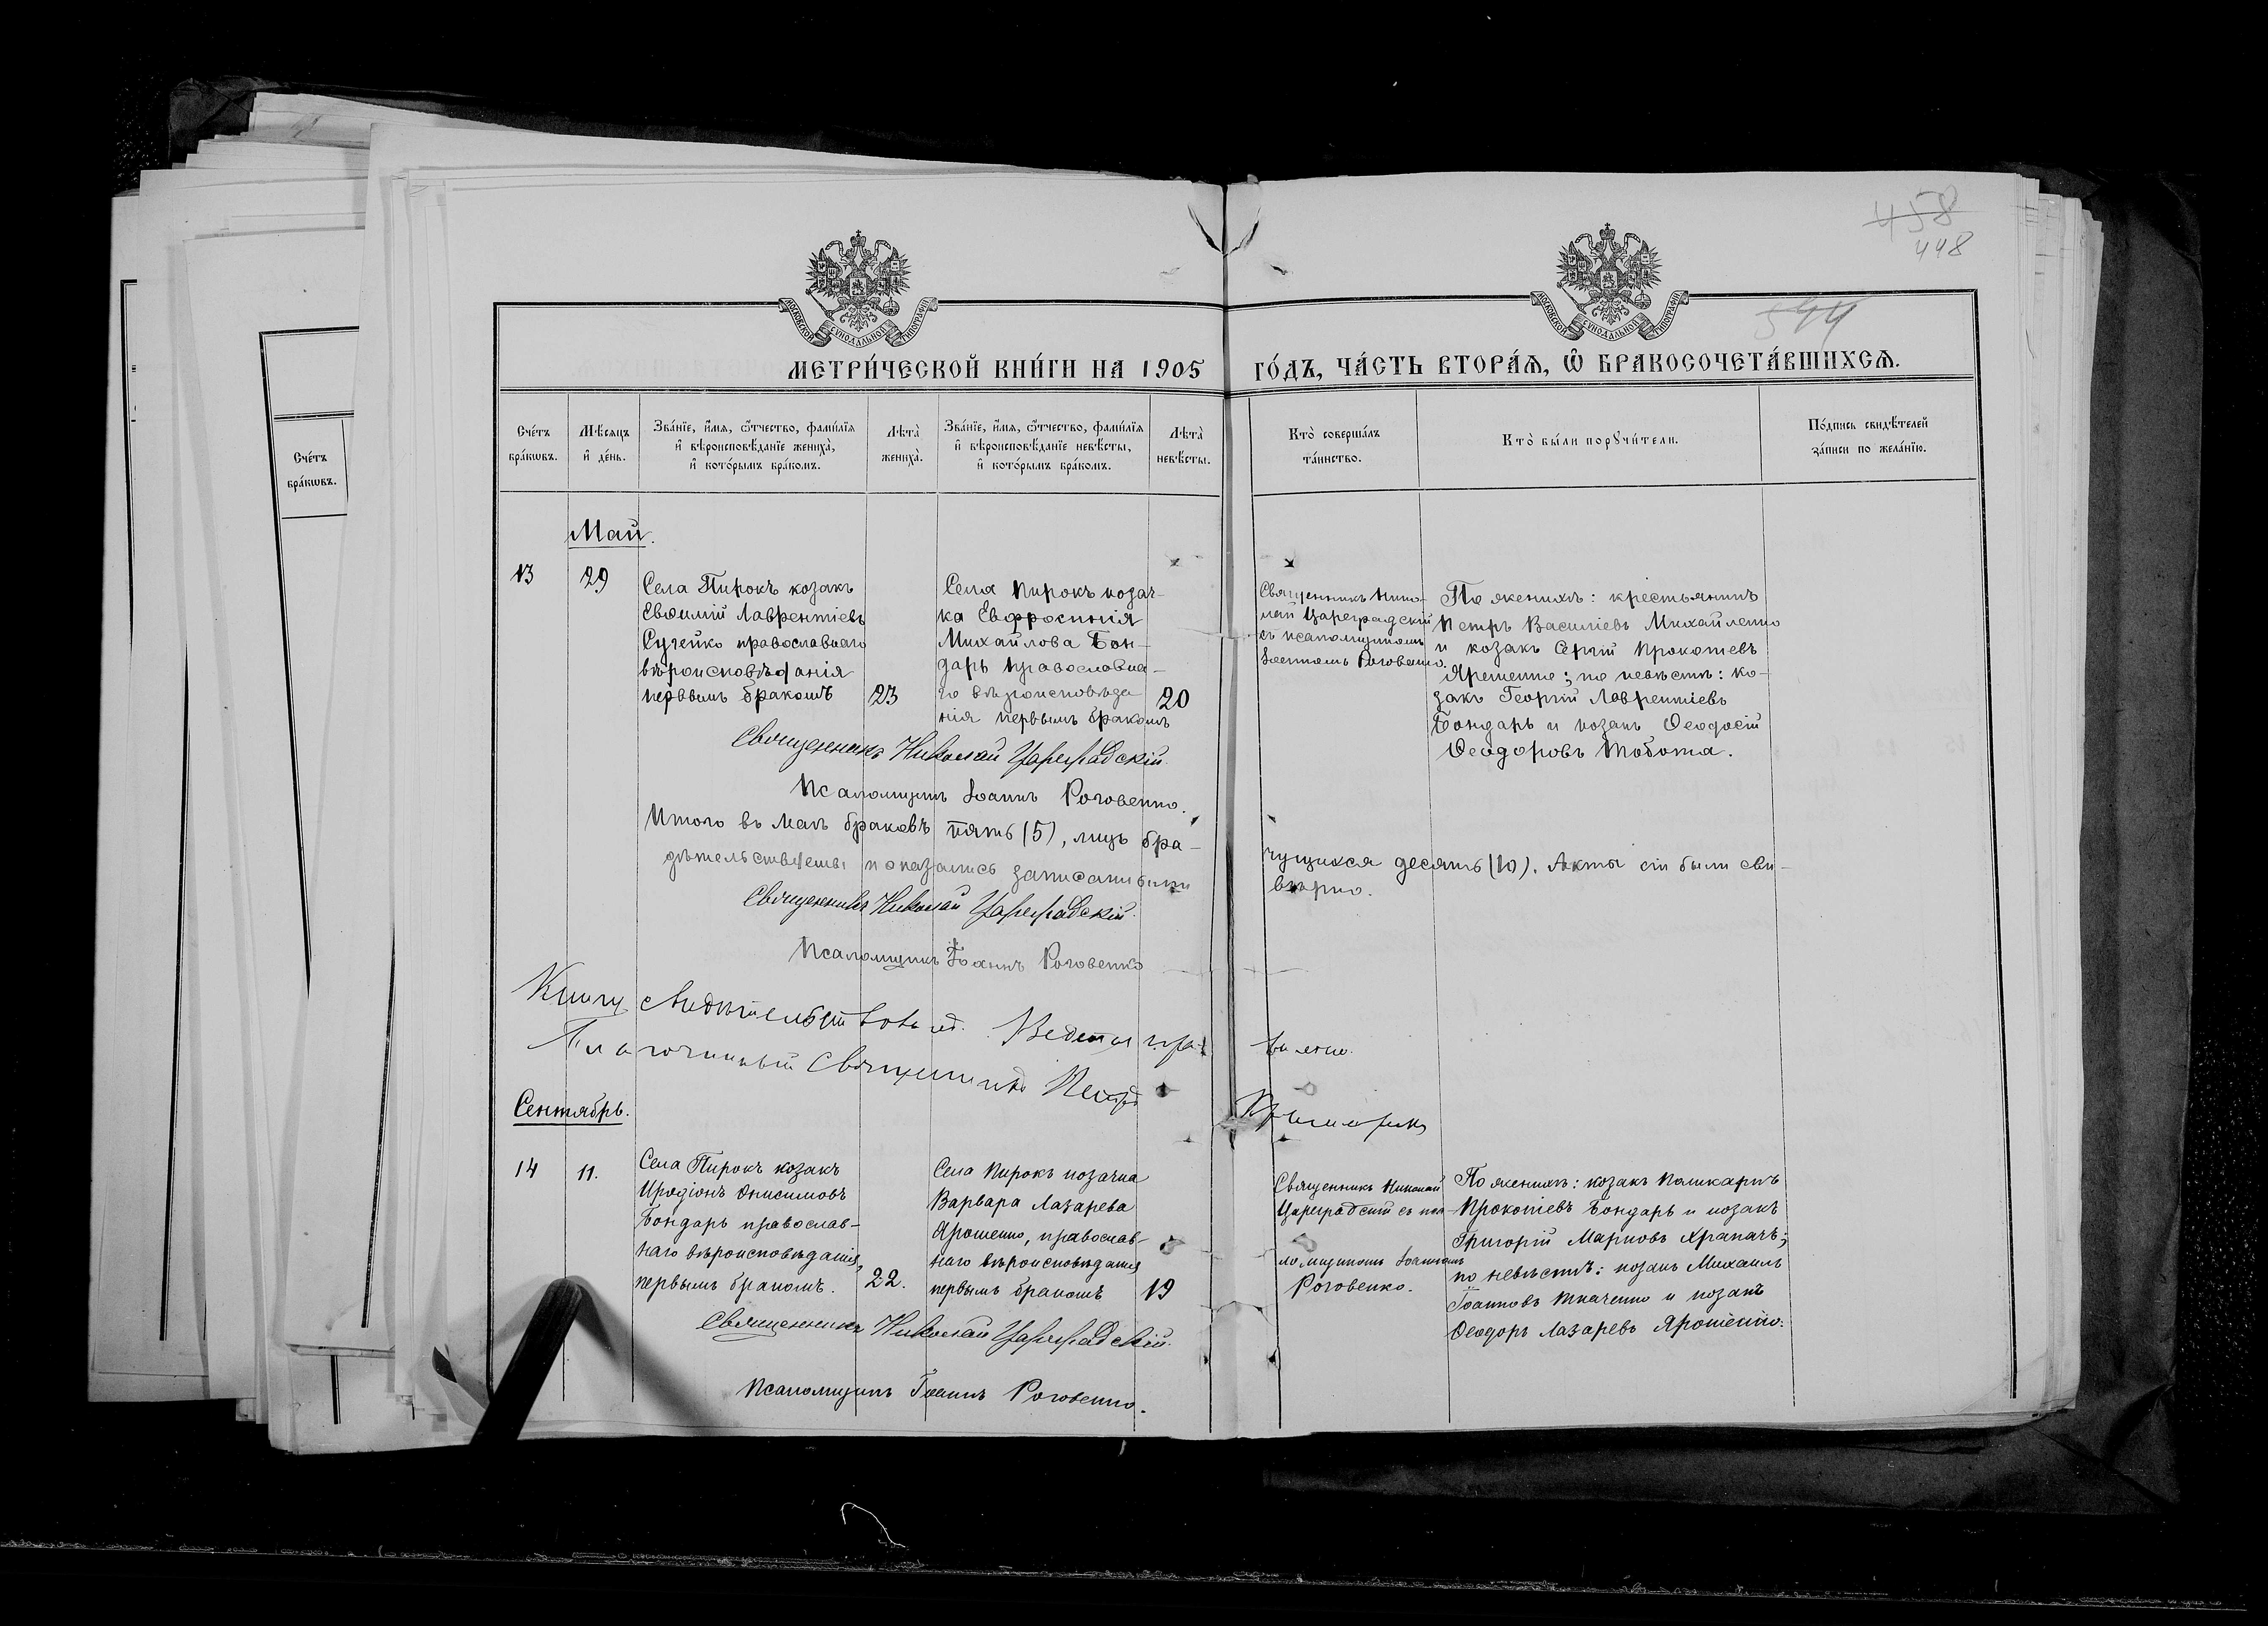 458
448
544
МОСКОВСКОЙ СѴНОДАЛЬНОЙ ТИПОГРАФІИ
МОСКОВСКОЙ СѴНОДАЛЬНОЙ ТИПОГРАФІИ
МЕТРИ́ЧЕСКОЙ КНИ́ГИ НА 1905 ГО́ДЪ, ЧА́СТЬ ВТОРА́Ѧ, Ѽ БРАКОСОЧЕТА́ВШИХСѦ.
Сче́тъ бра́кѡвъ.
Сче́тъ бра́кѡвъ.
Мѣ́сяцъ и҆ де́нь.
Зва́нїе, и҆́мѧ, ѻ҆́тчество, фами́лїѧ и҆ вѣроисповѣ́данїе жениха̀, и҆ кото́рымъ бра́комъ.
Лѣта̀ жениха̀.
Зва́нїе, и҆́мѧ, ѻ҆́тчество, фами́лїѧ и҆ вѣроисповѣ́данїе невѣ́сты, и҆ кото́рымъ бра́комъ.
Лѣта̀ невѣ́сты.
Кто̀ соверша́лъ та́инство.
Кто̀ бы́ли порꙋчи́тели.
По́дпись свидѣ́телей за́писи по жела́нїю.
Май.
13
29
Села Пирокъ козакъ
Евѳимій Лаврентіевъ
Сучейко православнаго
вѣроисповѣданія
первымъ бракомъ
23
Села Пирокъ козач-
ка Евфросинія
Михайлова Бон-
дарь православна-
го вѣроисповѣда
нія первымъ бракомъ
20
Священникъ Нико-
лай Цареградскій
съ псаломщикомъ
Іоанномъ Роговенко.
По женихѣ: крестьянинъ
Петръ Василіевъ Михайленко
и козакъ Сергій Прокопіевъ
Ярошенко; по невѣстѣ: ко-
закъ Георгій Лаврентіевъ
Бондарь и козакъ Ѳеодосій
Ѳеодоровъ Шобота.
Священникъ Николай Цареградскій.
Псаломщикъ Іоаннъ Роговенко.
Итого въ маѣ браковъ пять (5), лицъ бра-
чущихся десять (10). Акты сіи были сви-
дѣтельствуемы и оказались записанными
вѣрно.
Священникъ Николай Цареградскій.
Псаломщикъ Іоаннъ Роговенко
Книгу свидѣтельствовалъ. Ведется пра-
вильно.
Благочинный Священникъ Петръ
Сентябрь.
14
11.
Села Пирокъ козакъ
Иродіонъ Онисимовъ
Бондарь православ-
наго вѣроисповѣданія,
первымъ бракомъ.
22.
Села Пирокъ козачка
Варвара Лазарева
Ярошенко, православ-
наго вѣроисповѣданія
первымъ бракомъ
19
Священникъ Николай
Цареградскій съ пса-
ломщикомъ Іоанномъ
Роговенко.
По женихѣ: козакъ Поликарпъ
Прокопіевъ Бондарь и козакъ
Григорій Марковъ Храпачъ;
по невѣстѣ: козакъ Михаилъ
Іоанновъ Ткаченко и козакъ
Ѳеодоръ Лазаревъ Ярошенко.
Священникъ Николай Цареградскій.
Псаломщикъ Іоаннъ Роговенко.